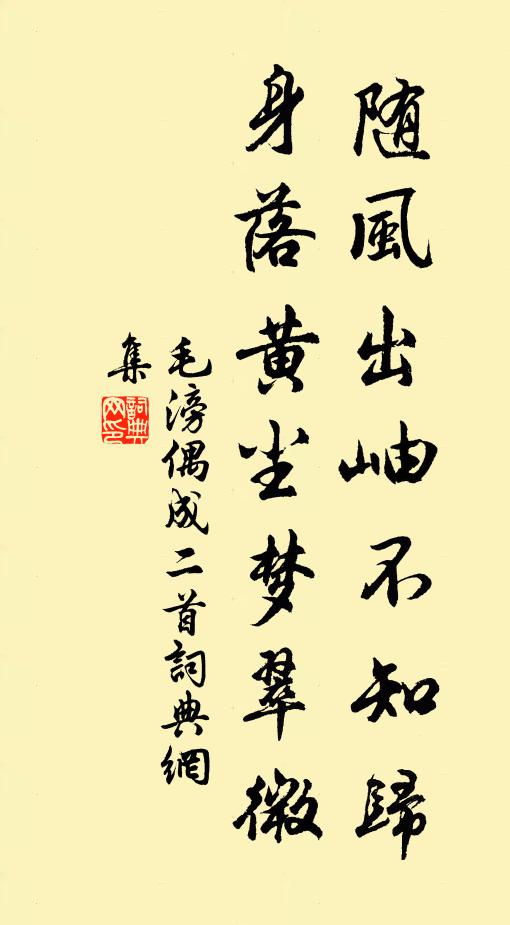 随風出岫不知歸
身落黄尘梦翠微
毛滂偶成二首詞典網
集
詞典網印